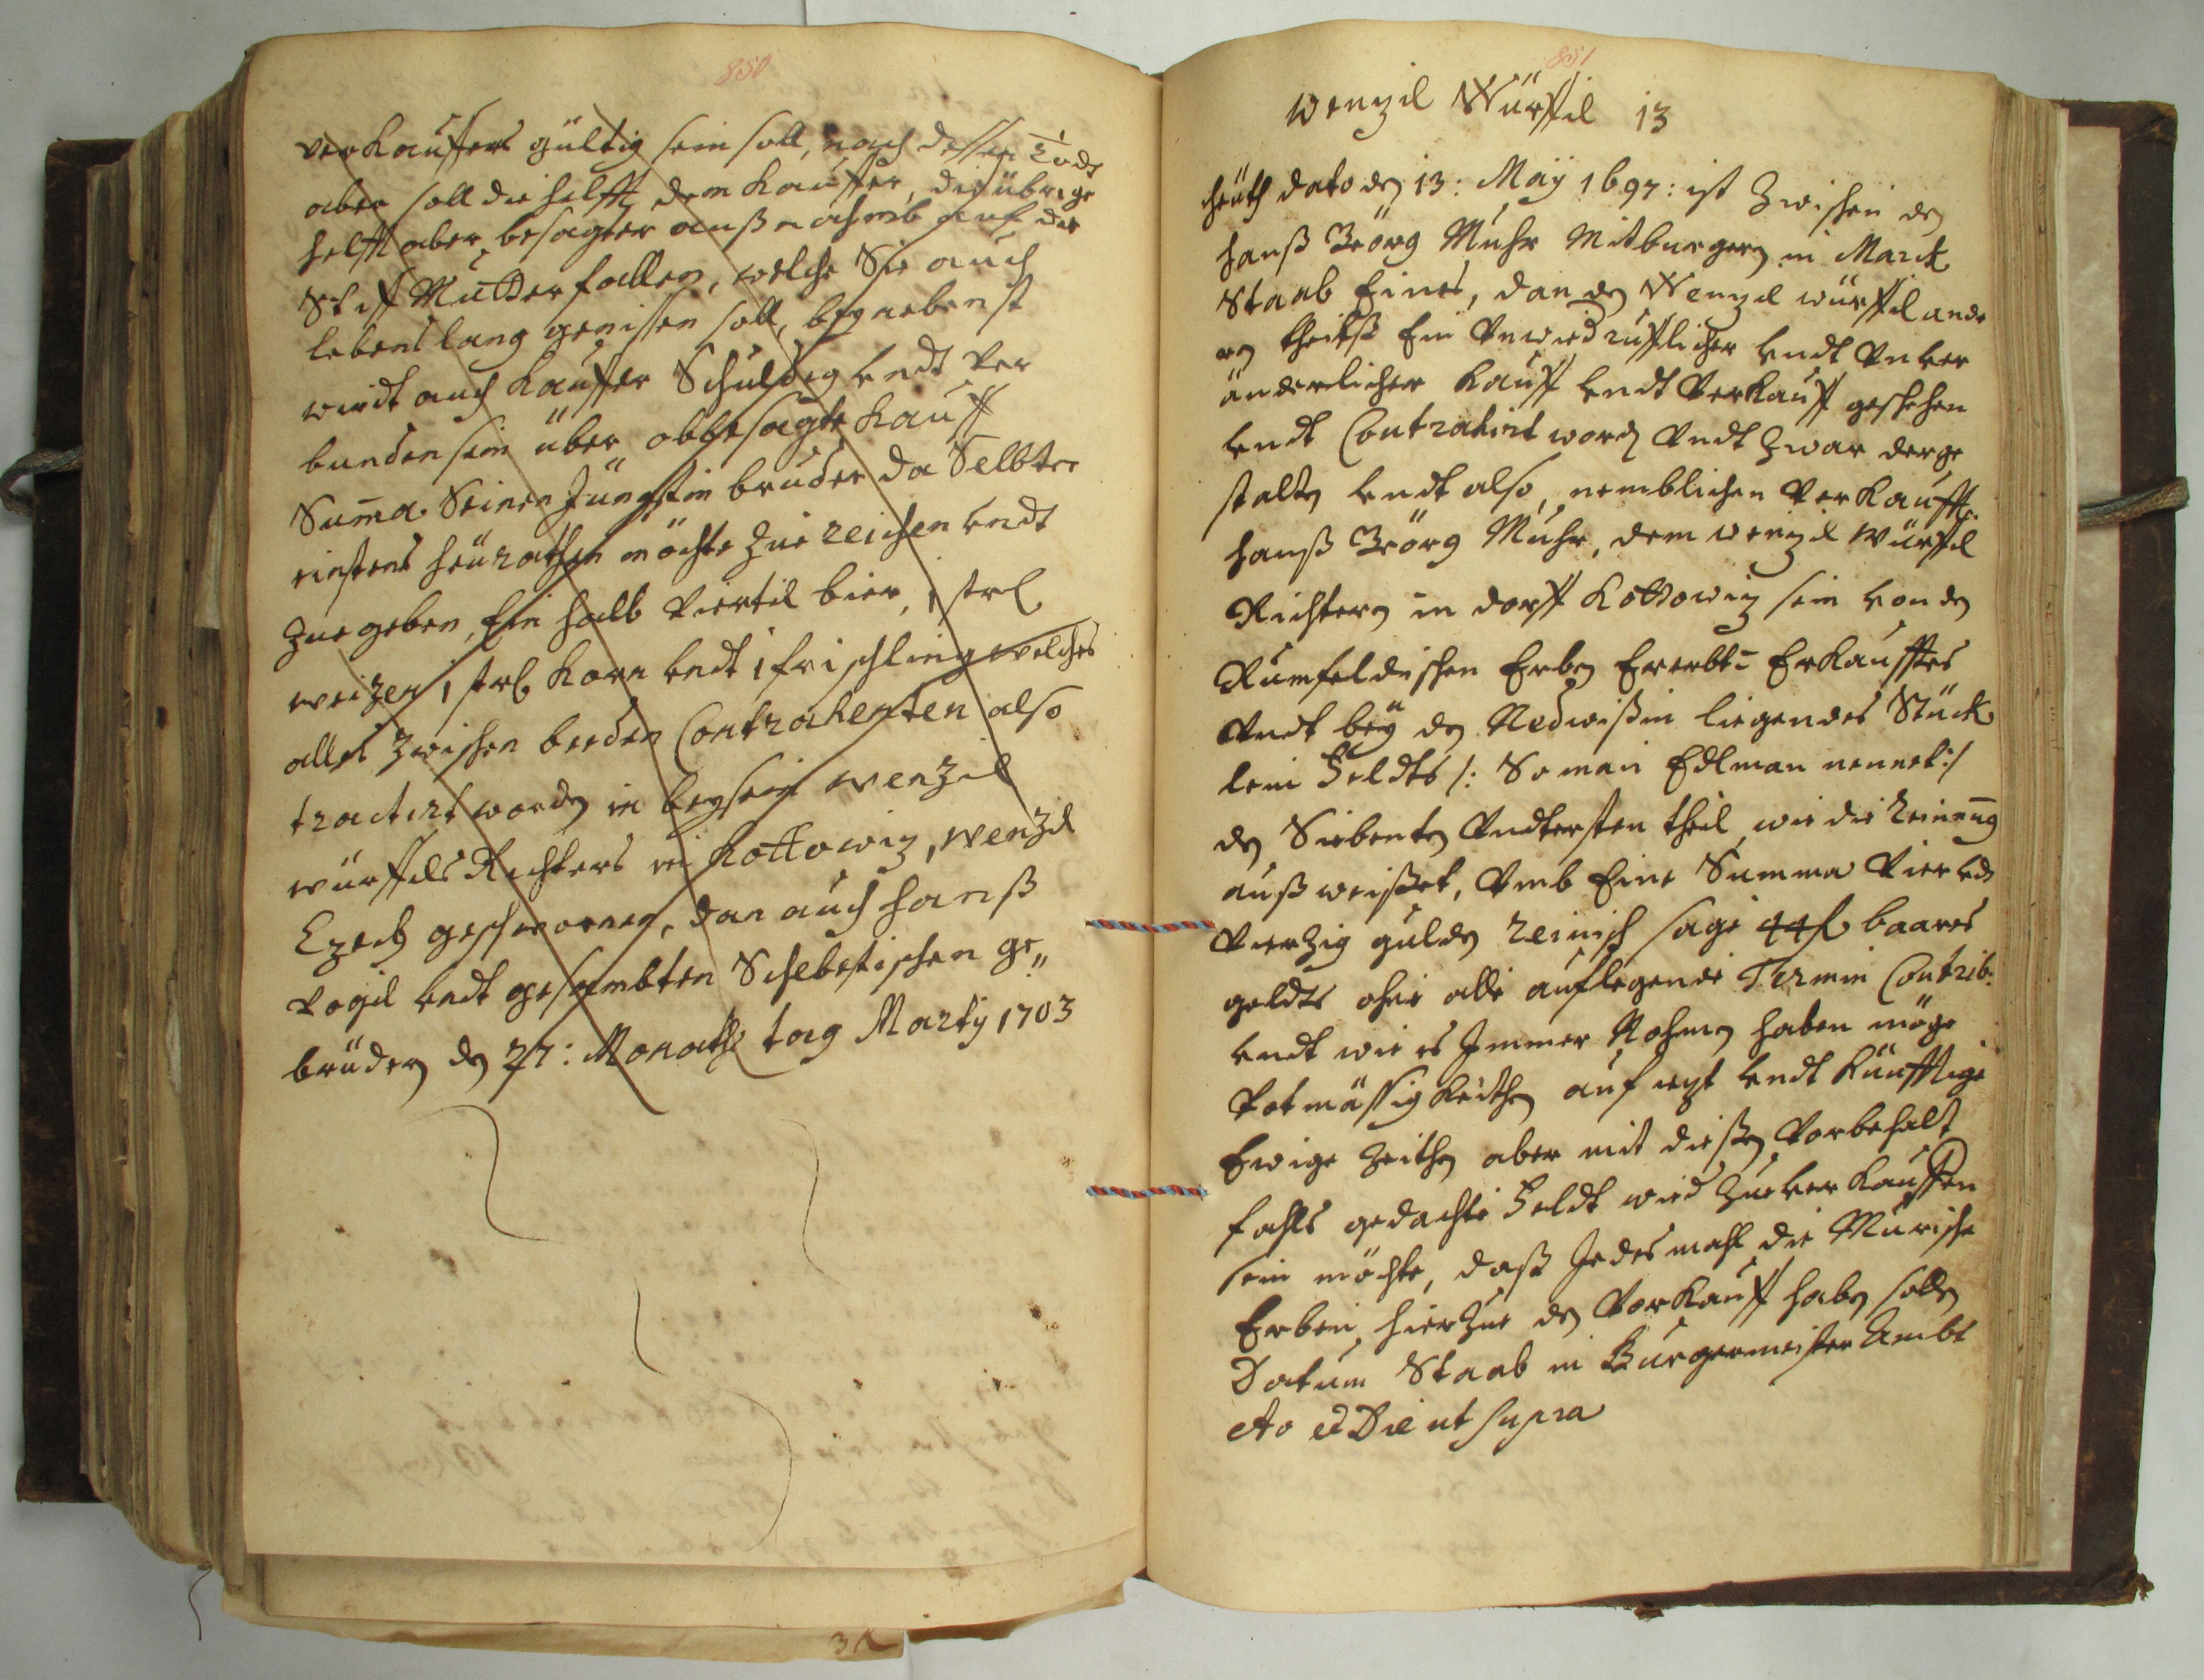 850
verkauffers gültig sein soll, nach dessen Todt
aber soll die helfft dem kauffer, die übrige
helfft aber besagter außnahmb auf die
Stiff Mutter fallen, welche Sie auch
lebens lang genissen soll, beynebenst
wirdt auch kauffer Schuldig undt ver
bunden sein über obbesagte kauff
Suma Seinen Jüngsten bruder da Selbter
einstens heürathen möchte zue reichen undt
zue geben, Ein halb Viertel bier, 1 strl
weizen 1 strl korn undt 1 frischling welches
alles zwischen beeden Contrahenten also
tractirt worden in beysein Wenzil
würffels Richters in Kottowiz, Wenzil
geschwornen, dan auch hanß
Vogil undt gesambten Schebestischen ge„
brüdern den 27: Monaths tag Martij 1703
851
Wenzil Würffil 13
heüth dato den 13: Maÿ 1697: ist zwischen den
hanß Geörg Muhr Mitburgern in Marck
Staab Eines, dan den Wenzil würffil ande
ren theilß Ein Unwiedrufflicher undt Unver
änderlicher kauff undt Verkauff geschehen
undt Contrahirt worden Undt zwar derge
stalten undt also, nemblichen Verkaufft
hanß Geörg Muhr, dem wenzil Würffil
Richtern in dorff Kottowiz sein von den
Rumfeldischen Erben Ererbt= Erkaufftes
Undt beÿ den Nedwißin liegendes Stück
lein Feldts /: So man Edlman nennet :/
den Siebenten Undtersten theil wie die Reinung
außweißet, Umb Eine Summa Vier undt
Vierzig gulden Reinisch sage 44 f baares
geldts ohne alle auflegende Termin Contrib:
undt wie es Immer Nahmen haben möge
Botmässigkeithen auf iezt undt künfftige
Ewige Zeithen aber mit dießen Vorbehalt
fahls gedachte Feldt wied zue verkauffen
sein möchte, daß Jedes mahl die Murische
Erben hierzue den Vorkauff haben sollen
Datum Staab in Burgermeister Ambt
Ao et Die ut supra